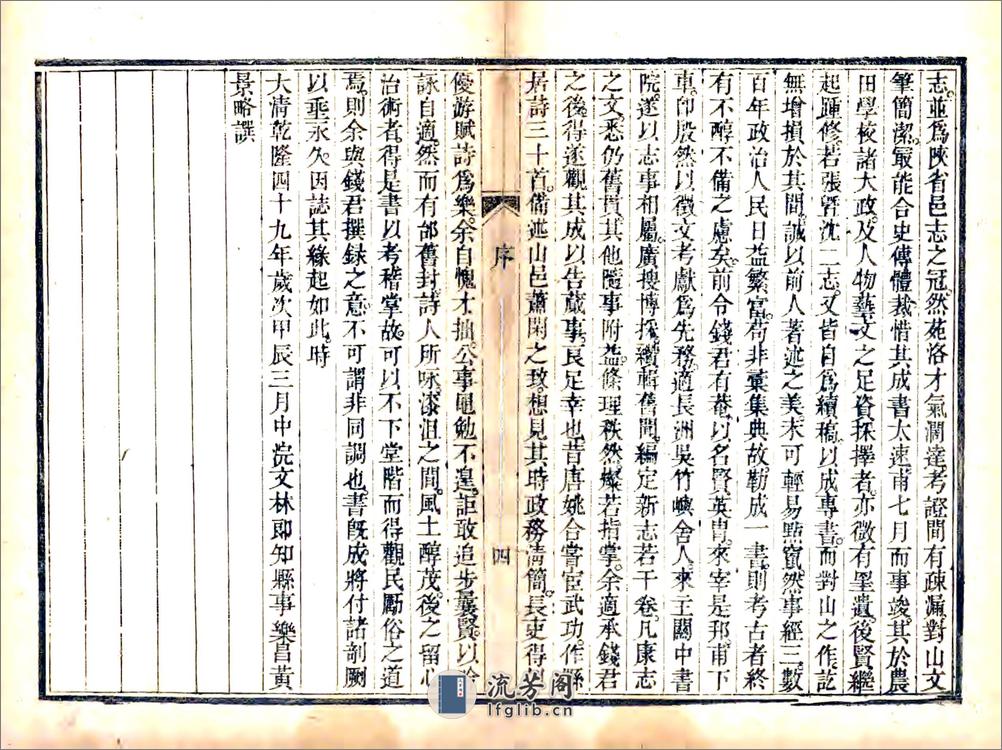 志並爲陝省邑志之冠然苑洛才氣濶達考證間有疎漏對山文
筆簡潔最能合史傳體裁惜其成書太速甫七月而事竣其於農
田學校諸大政及人物藝文之足資採擇者亦微有罣遺後賢繼
起踵修若張曁沈二志又皆自爲續稿以成專書而對山之作訖
無增損於其間誠以前人著述之美未可輕易點竄然事經三數
百年政治人民日益繁富苟非彙集典故勒成一書則考古者終
有不醇不備之慮矣前令錢君有菴以名賢英胄來宰是邦甫下
車印殷然以徵文考獻爲先務適長洲吳竹嶼舍人來主關中書
院遂以志事相屬廣搜博採續輯舊聞編定新志若干卷凡康志
之文悉仍舊貫其他隨事附益條理秩然燦若指掌余適承錢君
之後得遂觀其成以告蕆事良足幸也昔唐姚合嘗宦武功作縣
居詩三十首備述山邑蕭閑之致想見其時政務淸簡長吏得以
序
四
優游賦詩爲樂余自愧才拙公事黽勉不遑詎敢追步曩賢以吟
詠自適然而有邰舊封詩人所咏漆沮之間風土醇茂後之留心
治術者得是書以考稽掌故可以不下堂階而得觀民勵俗之道
焉則余與錢君撰録之意不可謂非同調也書旣成將付諸剞劂
以垂永久因誌其緣起如此時
大淸乾隆四十九年歲次甲辰三月中浣文林郎知縣事樂昌黃
景略譔
流芳閣
lfglib.cn